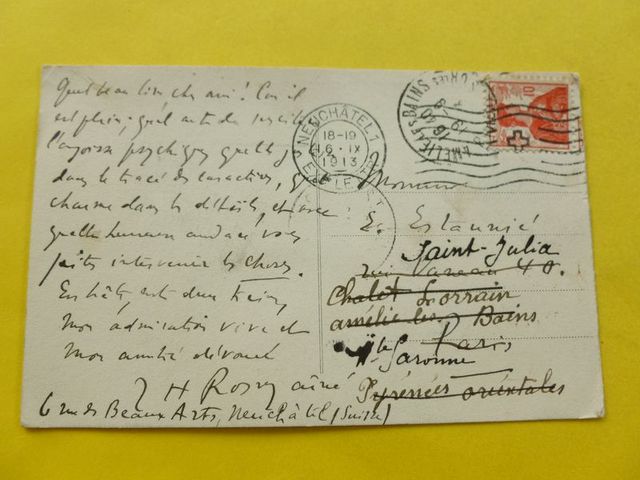 Quel beau livre cher ami! Où il
est plein, quel
l'angoisse psychique, quelle
dans le tracé des caractères, quel
charme dans les détails, et avec
quelle heureuse audace vous
faites intervenir les choses.
En hâte, entre deux trains
Mon admiration vive et
Mon amitié dévouée
J H Rosny aîné
6 rue des Beaux Arts, Neuchâtel (Suisse)
NEUCHÂTEL 1
18-19
16·IX
1913
AMELIE-LES-BAINS
10
Monsieur
E. Estaunié
Saint-Julia
rue Vaneau 40.
Chalet Lorrain
amélie les Bains
Paris
Hte Garonne
Pyrénées orientales